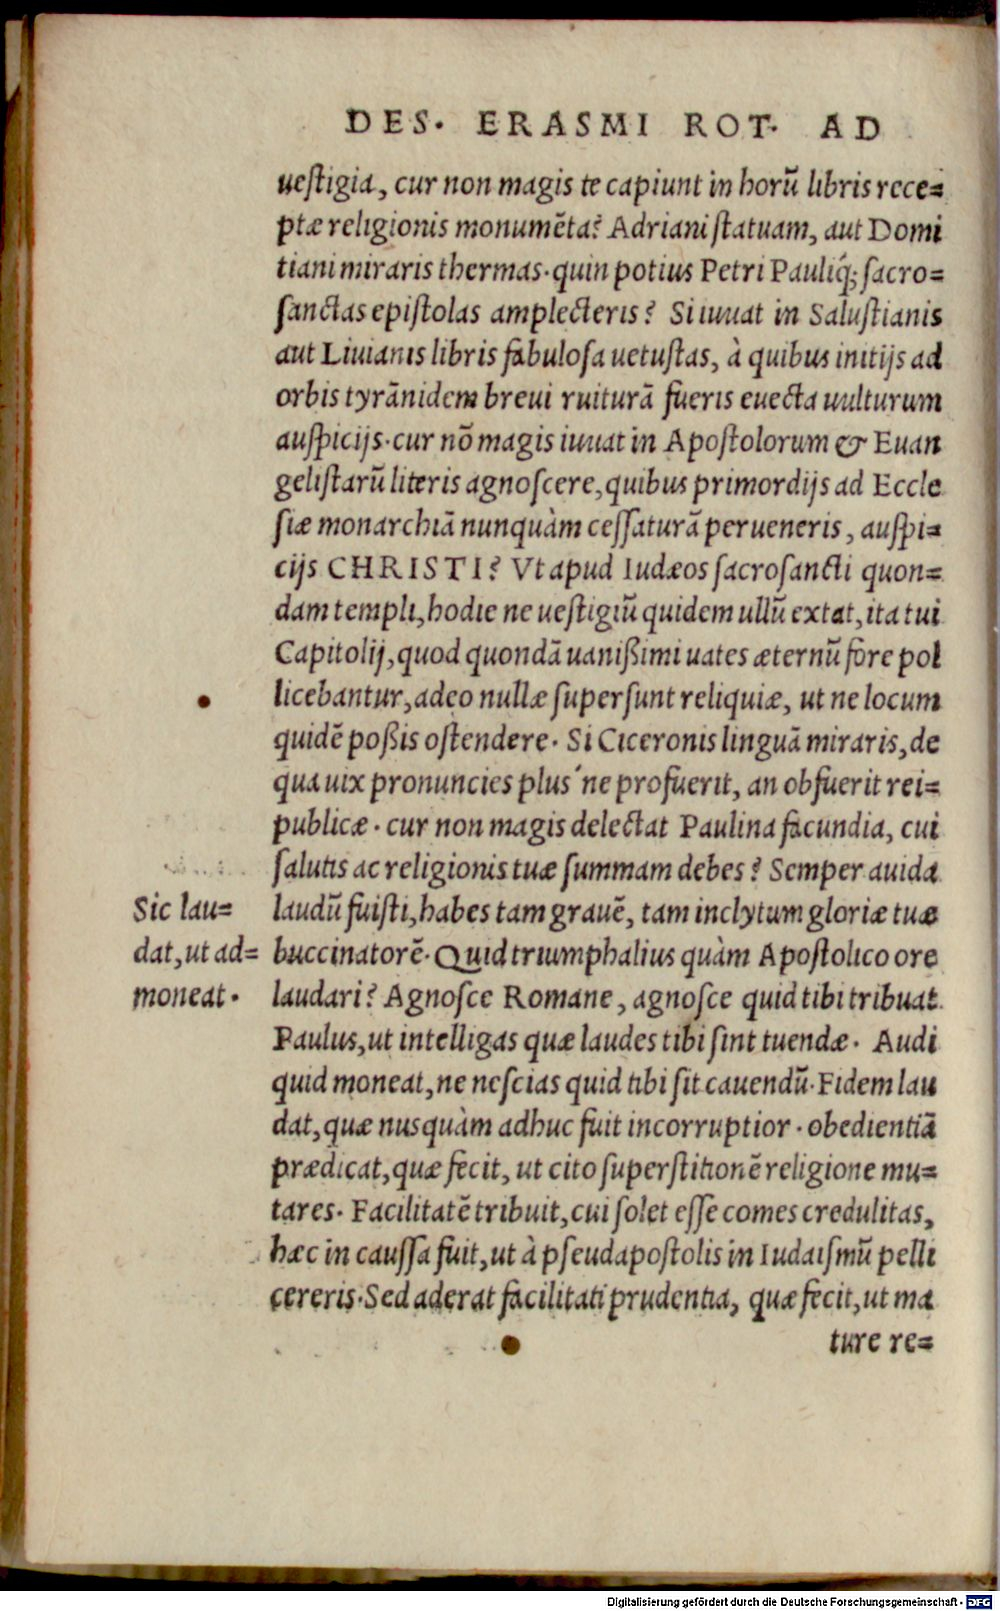 DES. ERASMI ROT. AD
uestigia, cur non magis te capiunt in horũ libris rece=
ptæ religionis monumẽta? Adriani statuam, aut Domi
tiani miraris thermas. quin potius Petri Pauliq́; sacro=
sanctas epistolas amplecteris? Si iuuat in Salustianis
aut Liuianis libris fabulosa uetustas, à quibus initijs ad
orbis tyrãnidem breui ruiturã fueris euecta uulturum
auspicijs. cur nõ magis iuuat in Apostolorum & Euan
gelistarũ literis agnoscere, quibus primordijs ad Eccle
siæ monarchiã nunquàm cessaturã perueneris, auspi=
cijs CHRISTI? Vt apud Iudæos sacrosancti quon=
dam templi, hodie ne uestigiũ quidem ullũ extat, ita tui
Capitolij, quod quondã uanißimi uates æternũ fore pol
licebantur, adeo nullæ supersunt reliquiæ, ut ne locum
quidẽ poßis ostendere. Si Ciceronis linguã miraris, de
qua uix pronuncies plus´ne profuerit, an obfuerit rei=
publicæ. cur non magis delectat Paulina facundia, cui
salutis ac religionis tuæ summam debes? Semper auida
laudũ fuisti, habes tam grauẽ, tam inclytum gloriæ tuæ
buccinatorẽ. Quid triumphalius quàm Apostolico ore
laudari? Agnosce Romane, agnosce quid tibi tribuat
Paulus, ut intelligas quæ laudes tibi sint tuendæ. Audi
quid moneat, ne nescias quid tibi sit cauendũ. Fidem lau
dat, quæ nusquàm adhuc fuit incorruptior. obedientiã
prædicat, quæ fecit, ut cito superstitionẽ religione mu=
tares. Facilitatẽ tribuit, cui solet esse comes credulitas,
hæc in caussa fuit, ut à pseudapostolis in Iudaismũ pelli
cereris. Sed aderat facilitati prudentia, quæ fecit, ut ma
ture re=
Sic lau=
dat, ut ad=
moneat.
Digitalisierung gefördert durch die Deutsche Forschungsgemeinschaft - DFG